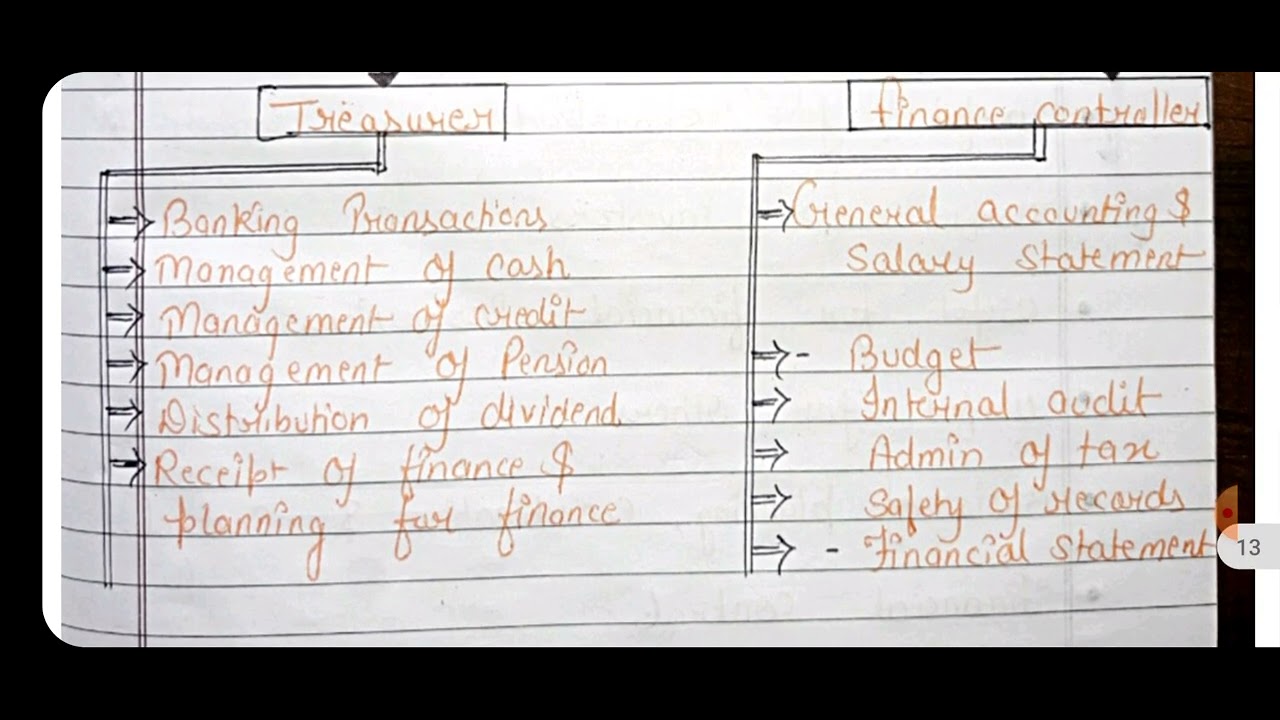 Treasurer
⇒ Banking Transactions
⇒ Management of cash
⇒ Management of credit
⇒ Management of Pension
⇒ Distribution of dividend
⇒ Receipt of finance &
planning for finance
finance controller
⇒ General accounting &
Salary Statement
⇒ - Budget
⇒ Internal audit
⇒ Admin of tax
⇒ Safety of records
⇒ - financial Statement
13